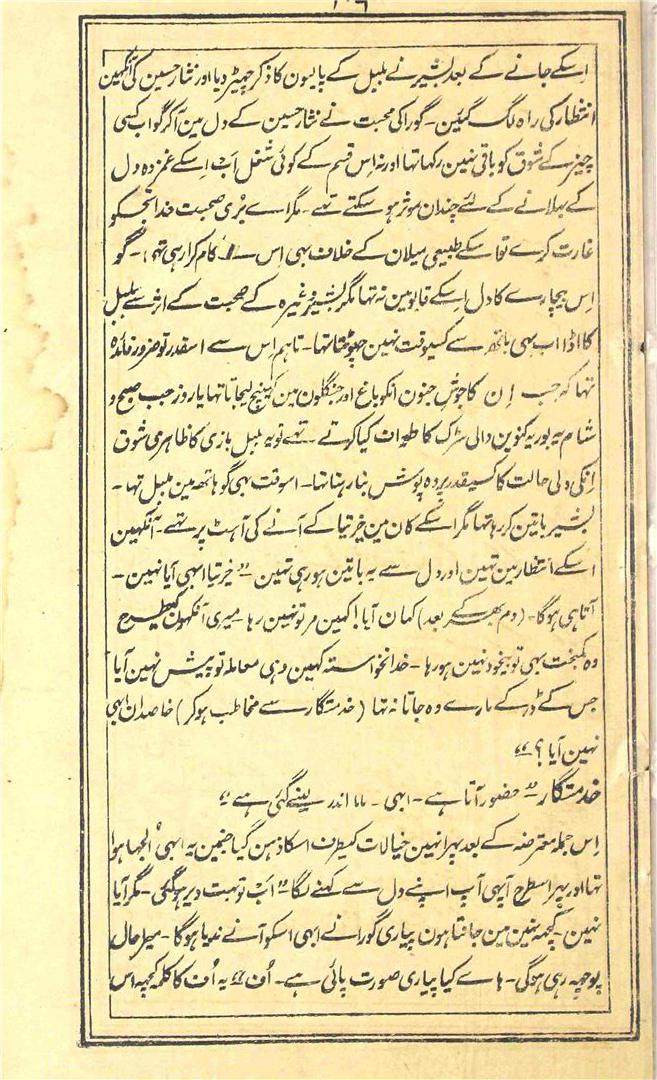 اسکے جانے کے بعد بشیر نے بلبل کے پایون کا ذکر چھیڑ دیا اور نثار حسین کی آنکھین
انتظار کی راہ لگ گئین۔ گورا کی محبت نے نثار حسین کے دل مین آکر گواب کسی
چیز کے شوق کو باقی نہین رکھا تھا اور نہ اس قسم کے کوئی شغل اب اسکے غمزدہ دل
کے بہلانے کے لئے چندان موثر ہو سکتے تہے۔ مگر اے بُری صحبت خدا تجکو
غارت کرے تو اسکے طبیعی میلان کے خلاف بہی اس سے کام کرا رہی تہی۔ گو
اس بیچارے کا دل اسکے قابو مین نہ تہا مگر بشیر وغیرہ کے صحبت کے اثر سے بلبل
کا اڈا اب بہی ہاتھ سے کسیوقت نہین چھوٹتا تہا۔ تاہم اس سے اسقدر تو ضرور فائدہ
تہا کہ جب اِن کا جوشِ جنون انکو باغ اور جنگلون مین کہینچ لیجاتا تہا یا روز جب صبح و
شام یہ بوریہ کنوین والی سڑک کا طواف کیا کرتے تہے تو یہ بلبل بازی کا ظاہری شوق
انکی دلی حالت کا کسیقدر پردہ پوش بنا رہتا تہا۔ اسوقت بہی گو ہاتھ مین بلبل تہا۔
بشیر باتین کر رہا تہا مگر اسکے کان مین خیرتیا کے آنے کی آہٹ پر تہے۔ آنکہین
اسکے انتظار مین تہین اور دل سے یہ باتین ہو رہی تہین ”خیرتیا ابہی آیا نہین۔
آتا ہی ہوگا۔ (دم بھر کے بعد) کہان آیا! کہین مر تو نہین رہا۔ میری آنکہون کیطرح
وہ کمبخت بہی تو بیخود نہین ہو رہا۔ خدانخواستہ کہین وہی معاملہ تو پیش نہین آیا
جس کے ڈر کے مارے وہ جاتا نہ تہا (خدمتگار سے مخاطب ہوکر) خاصدان ابہی
نہین آیا؟“
خدمتگار ”حضور آتا ہے۔ ابہی۔ ماما اندر لینے گئی ہے“
اِس جملہ معترضہ کے بعد پہر انہین خیالات کیطرف اسکا ذہن گیا جنمین یہ ابہی الجہا ہوا
تہا اور پہر اسطرح آپہی آپ اپنے دل سے کہنے لگا ”اب تو بہت دیر ہوگئی۔ مگر آیا
نہین۔ کچہہ نہین مین جانتا ہون پیاری گورا نے ابہی اسکو آنے ندیا ہوگا۔ میرا حال
پوچہہ رہی ہوگی۔ ہاے کیا پیاری صورت پائی ہے۔ اُف“ یہ اُف کا کلمہ کچہہ اس